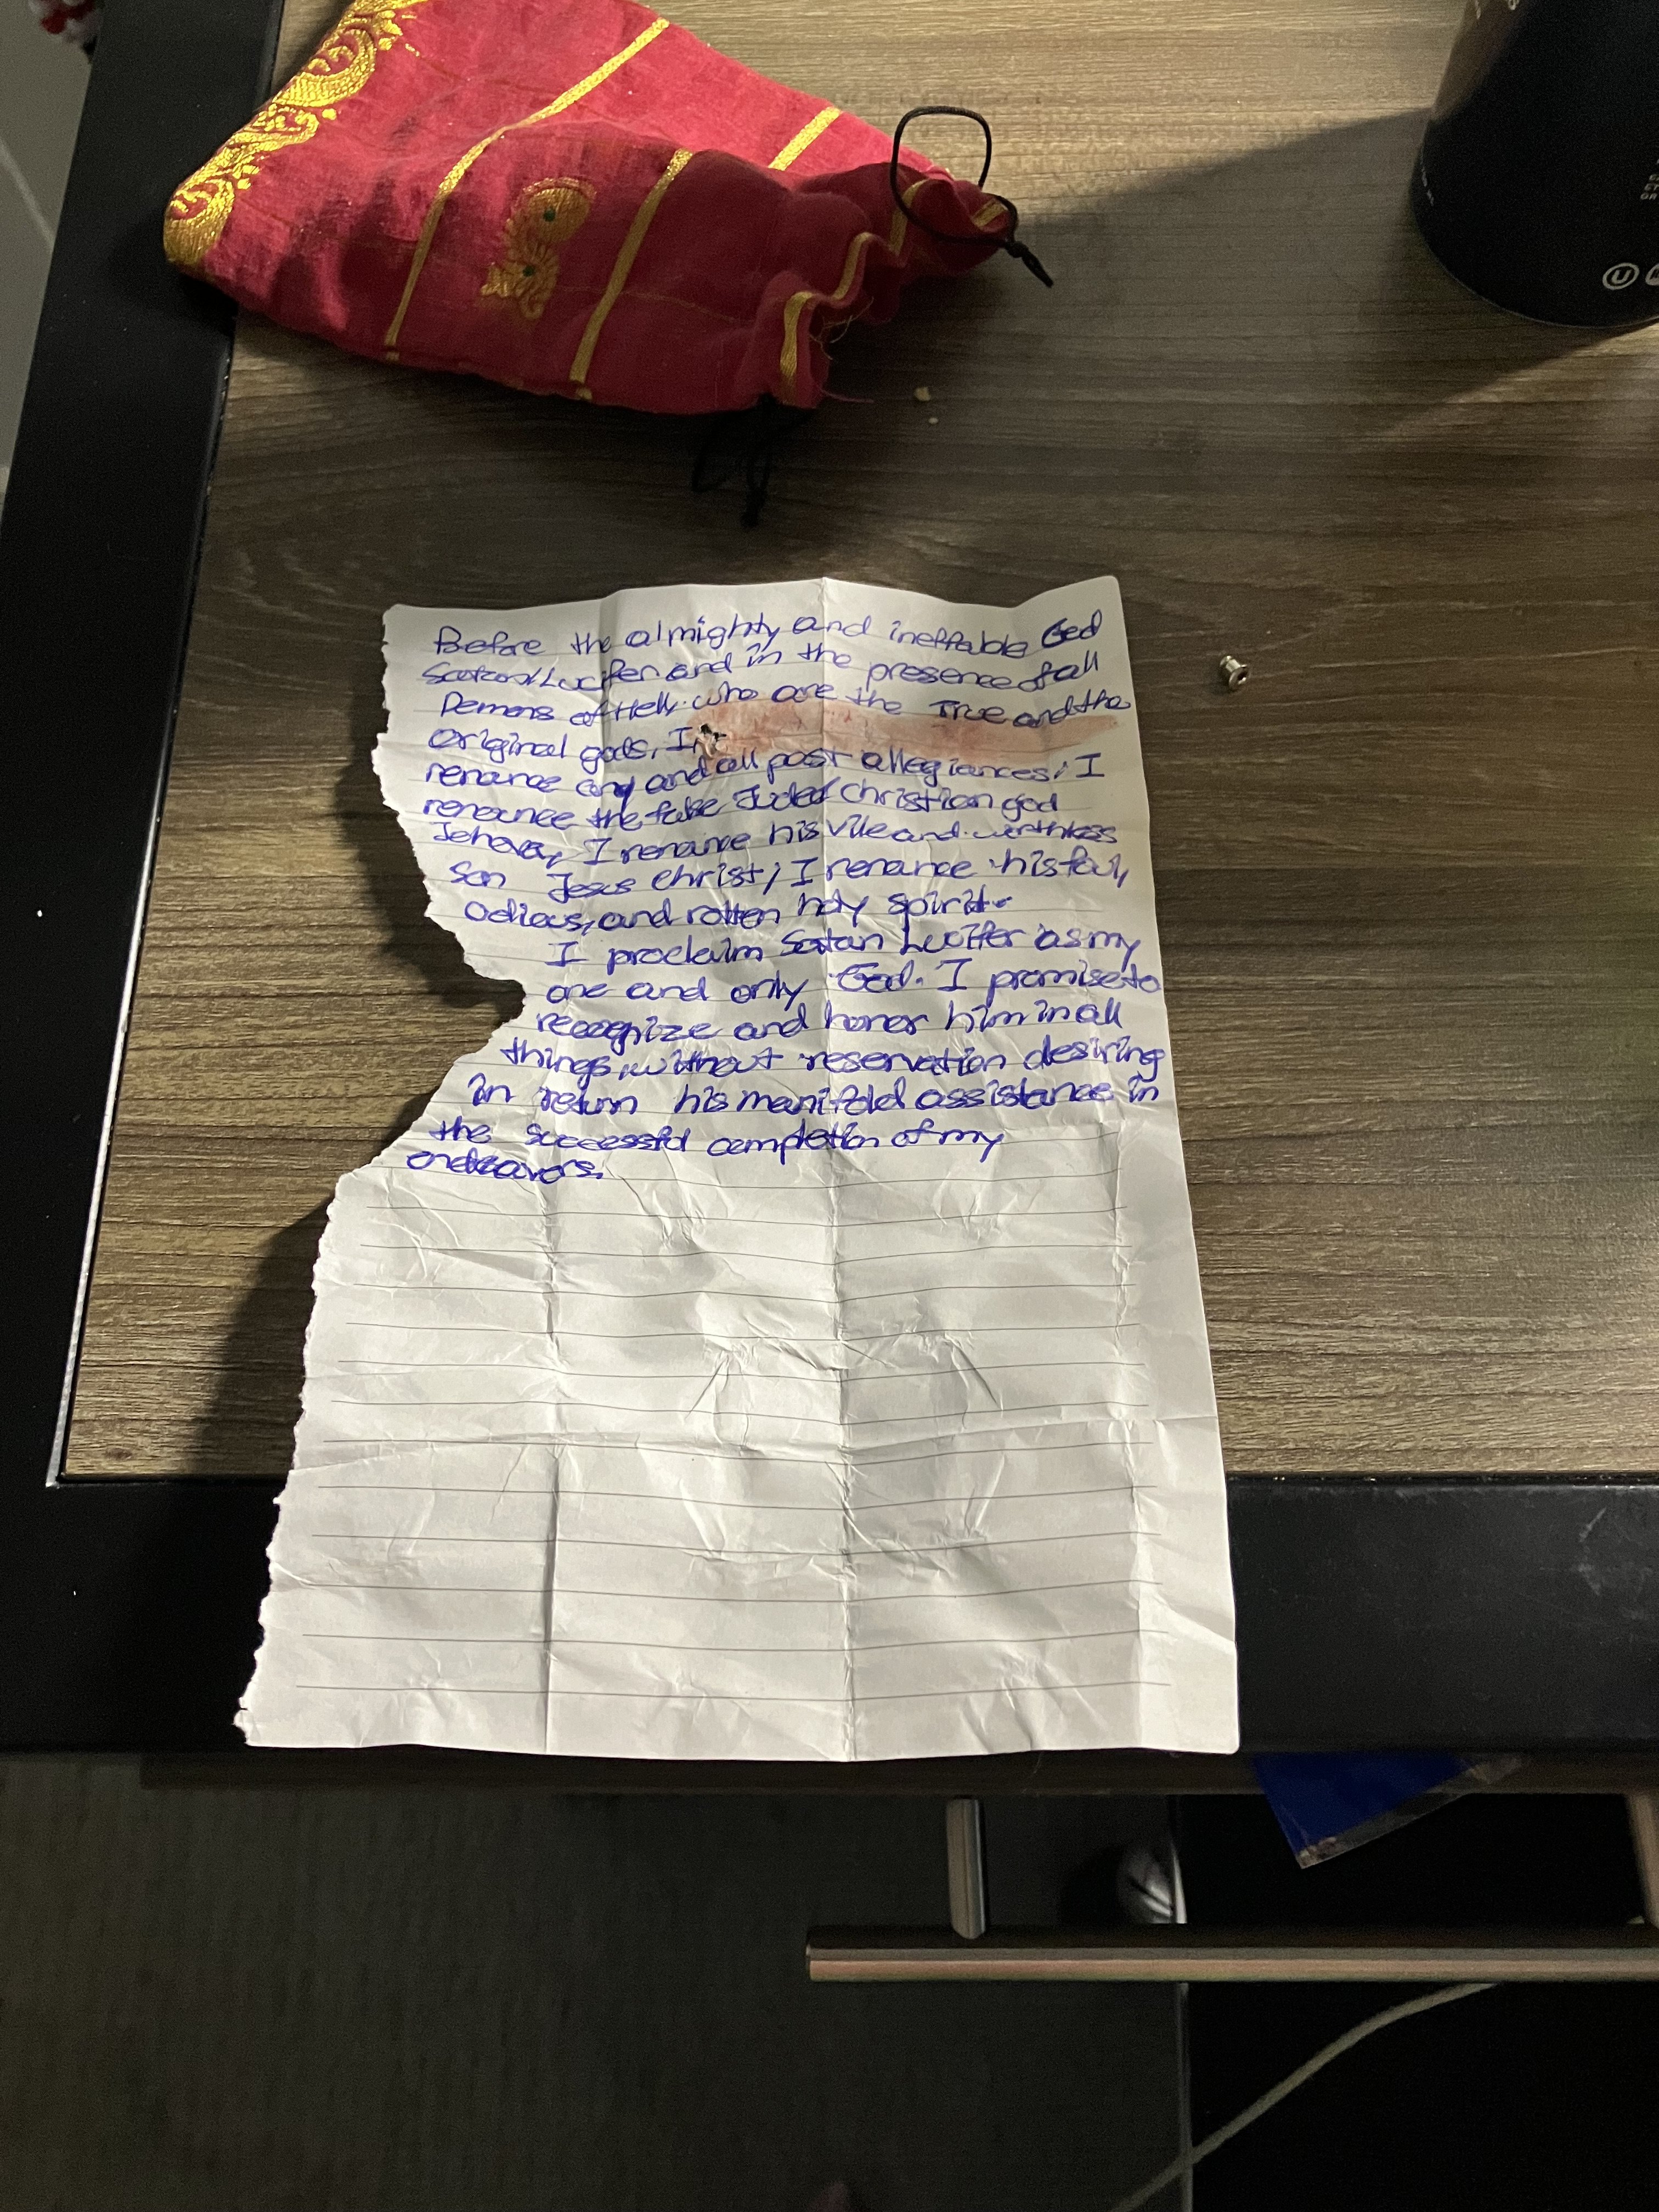 Before the almighty and ineffable God
Satan/Lucifer and in the presence of all
Demons of Hell, who are the True and the
original gods, I,
renance any and all past allegiances, I
renounce the fake Judeo/Christian god
Jehova, I renance his vile and worthless
Son Jesus Christ, I renance his foul,
Odious, and rotten holy spirit.
I proclaim Satan Lucifer as my
one and only God. I promise to
recognize and honor him in all
things, without reservation desiring
in return his manifold assistance in
the successful completion of my
endeavors.